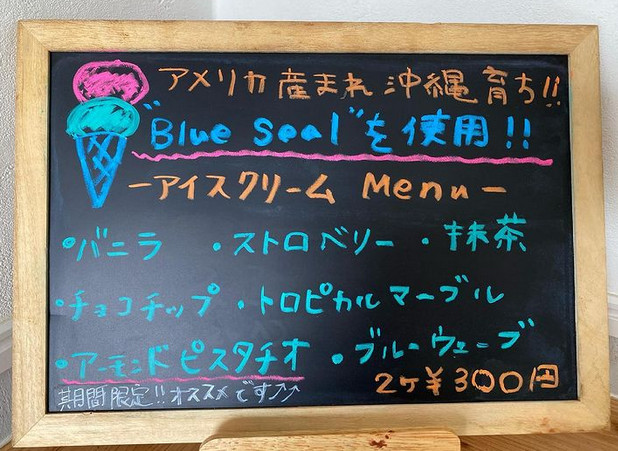 アメリカ産まれ 沖縄育ち!!
"Blue Seal"を使用!!
ーアイスクリーム Menuー
・バニラ ・ストロベリー ・抹茶
・チョコチップ ・トロピカルマーブル
・アーモンドピスタチオ ・ブルーウェーブ
期間限定!!オススメです↗↗ 2ケ¥300円